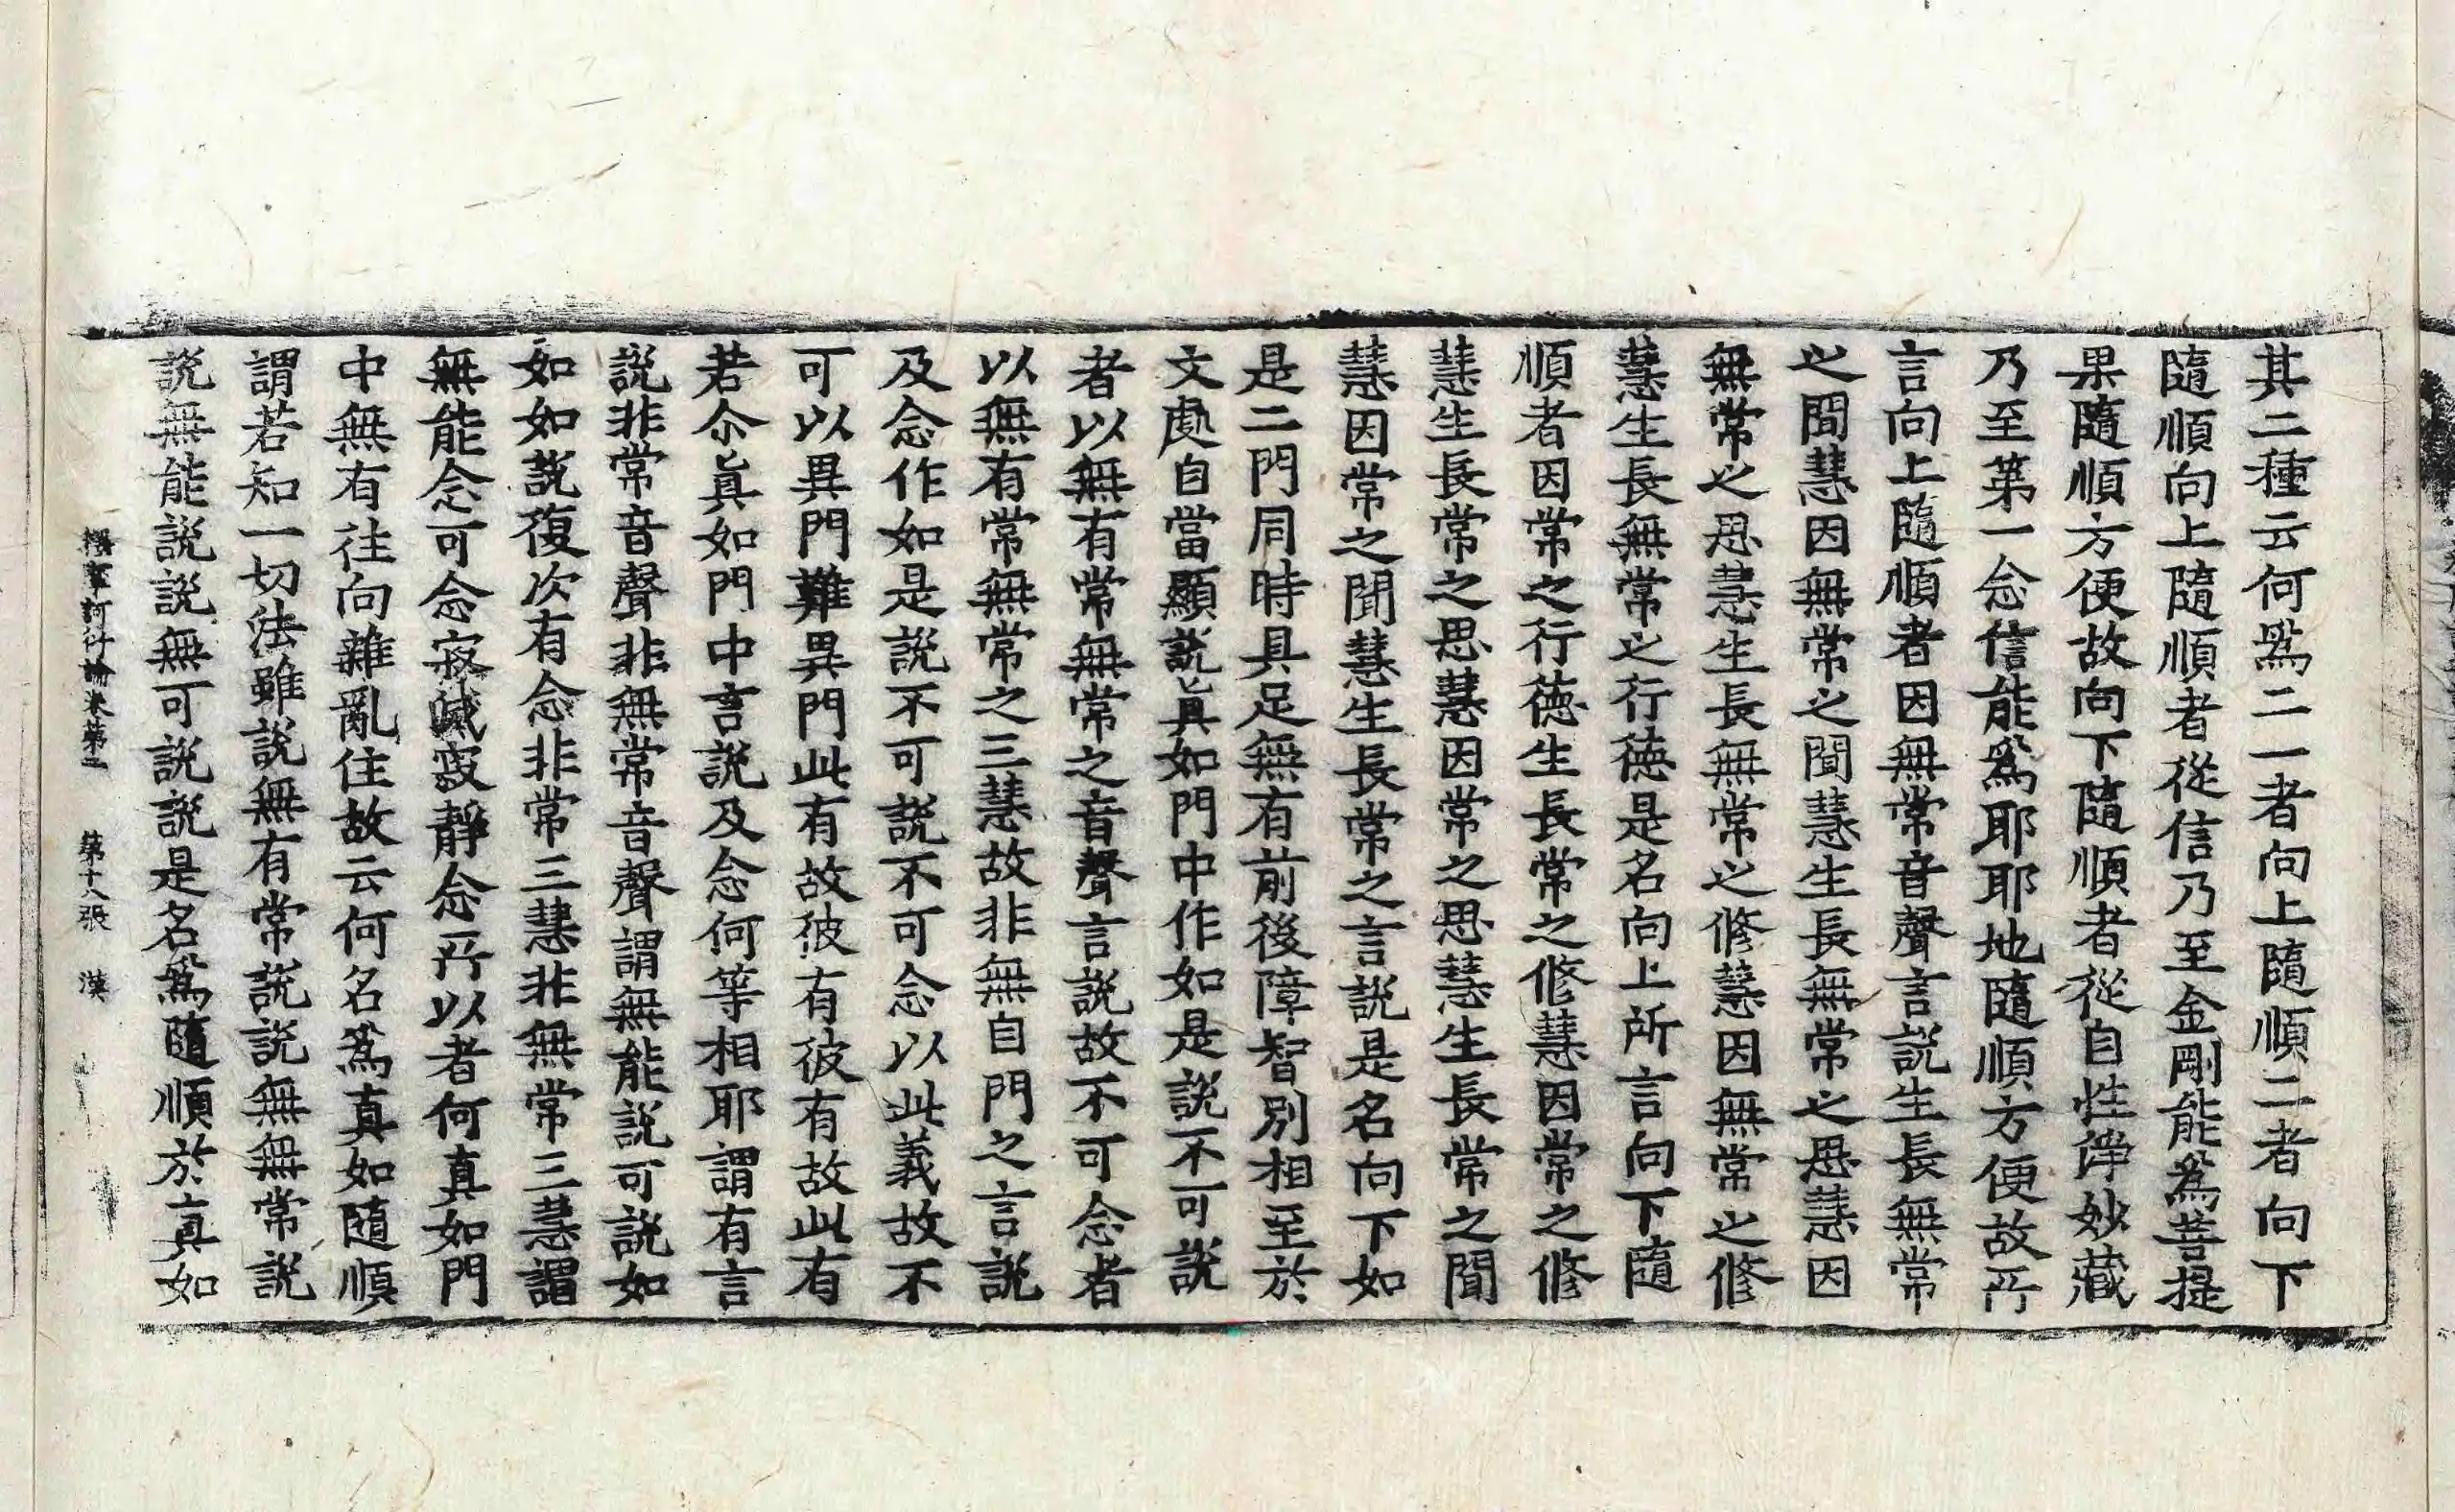 其二種云何爲二一者向上隨順二者向下
隨順向上隨順者從信乃至金剛能爲菩提
果隨順方便故向下隨順者從自性淨妙藏
乃至第一念信能爲耶耶地隨順方便故所
言向上隨順者因無常音聲言説生長無常
之聞慧因無常之聞慧生長無常之思慧因
無常之思慧生長無常之修慧因無常之修
慧生長無常之行徳是名向上所言向下隨
順者因常之行徳生長常之修慧因常之修
慧生長常之思慧因常之思慧生長常之聞
慧因常之聞慧生長常之言説是名向下如
是二門同時具足無有前後障智別相至於
文處自當顯説眞如門中作如是説不可説
者以無有常無常之音聲言説故不可念者
以無有常無常之三慧故非無自門之言説
及念作如是説不可説不可念以此義故不
可以異門難異門此有故彼有彼有故此有
若尒眞如門中言説及念何等相耶謂有言
説非常音聲非無常音聲謂無能説可説如
如如説復次有念非常三慧非無常三慧謂
無能念可念寂滅寂靜念所以者何真如門
中無有往向雜亂住故云何名爲真如隨順
謂若知一切法雖説無有常説説無無常説
説無能説説無可説説是名爲隨順於真如
釋摩訶衍論卷第二 第十八張 漢